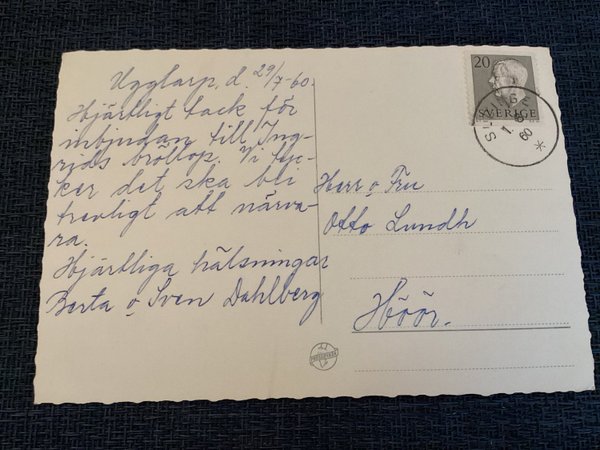 Ugglarp. d. 29/7-60.
Hjärtligt tack för
inbjudan till Ing-
rids bröllop. Vi tyc-
ker det ska bli
trevligt att närva-
ra.
Hjärtliga hälsningar
Berta o Sven Dahlberg
20
SVERIGE
1. 8
60
Herr o Fru
Otto Lundh
Höör.